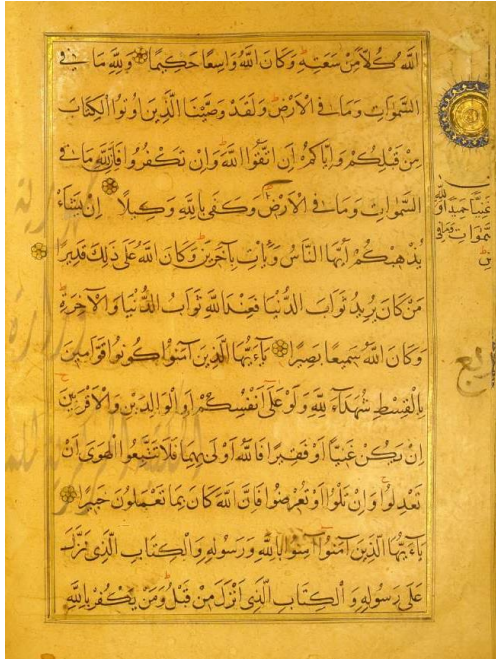 اللّٰهُ كُلًّا مِنْ سَعَتِهِ وَكَانَ اللّٰهُ وَاسِعًا حَكِيمًا وَلِلّٰهِ مَا فِي
السَّمٰوَاتِ وَمَا فِي الْاَرْضِ وَلَقَدْ وَصَّيْنَا الَّذِينَ اُوتُوا الْكِتَابَ
مِنْ قَبْلِكُمْ وَاِيَّاكُمْ اَنِ اتَّقُوا اللّٰهَ وَاِنْ تَكْفُرُوا فَاِنَّ لِلّٰهِ مَا فِي
السَّمٰوَاتِ وَمَا فِي الْاَرْضِ وَكَفٰى بِاللّٰهِ وَكِيلًا اِنْ يَشَأْ
يُذْهِبْكُمْ اَيُّهَا النَّاسُ وَيَأْتِ بِآخَرِينَ وَكَانَ اللّٰهُ عَلٰى ذٰلِكَ قَدِيرًا
مَنْ كَانَ يُرِيدُ ثَوَابَ الدُّنْيَا فَعِنْدَ اللّٰهِ ثَوَابُ الدُّنْيَا وَالْآخِرَةِ
وَكَانَ اللّٰهُ سَمِيعًا بَصِيرًا يَاءَيُّهَا الَّذِينَ آمَنُوا كُونُوا قَوَّامِينَ
بِالْقِسْطِ شُهَدَاءَ لِلّٰهِ وَلَوْ عَلٰى اَنْفُسِكُمْ اَوِ الْوَالِدَيْنِ وَالْاَقْرَبِينَ
اِنْ يَكُنْ غَنِيًّا اَوْ فَقِيرًا فَاللّٰهُ اَوْلٰى بِهِمَا فَلَا تَتَّبِعُوا الْهَوٰى اَنْ
تَعْدِلُوا وَاِنْ تَلْوُا اَوْ تُعْرِضُوا فَاِنَّ اللّٰهَ كَانَ بِمَا تَعْمَلُونَ خَبِيرًا
يَاءَيُّهَا الَّذِينَ آمَنُوا آمِنُوا بِاللّٰهِ وَرَسُولِهِ وَالْكِتَابِ الَّذِي نَزَّلَ
عَلٰى رَسُولِهِ وَالْكِتَابِ الَّذِي اَنْزَلَ مِنْ قَبْلُ وَمَنْ يَكْفُرْ بِاللّٰهِ
غَنِيًّا حَمِيدًا و
سَّمٰوَاتِ وَمَا فِي